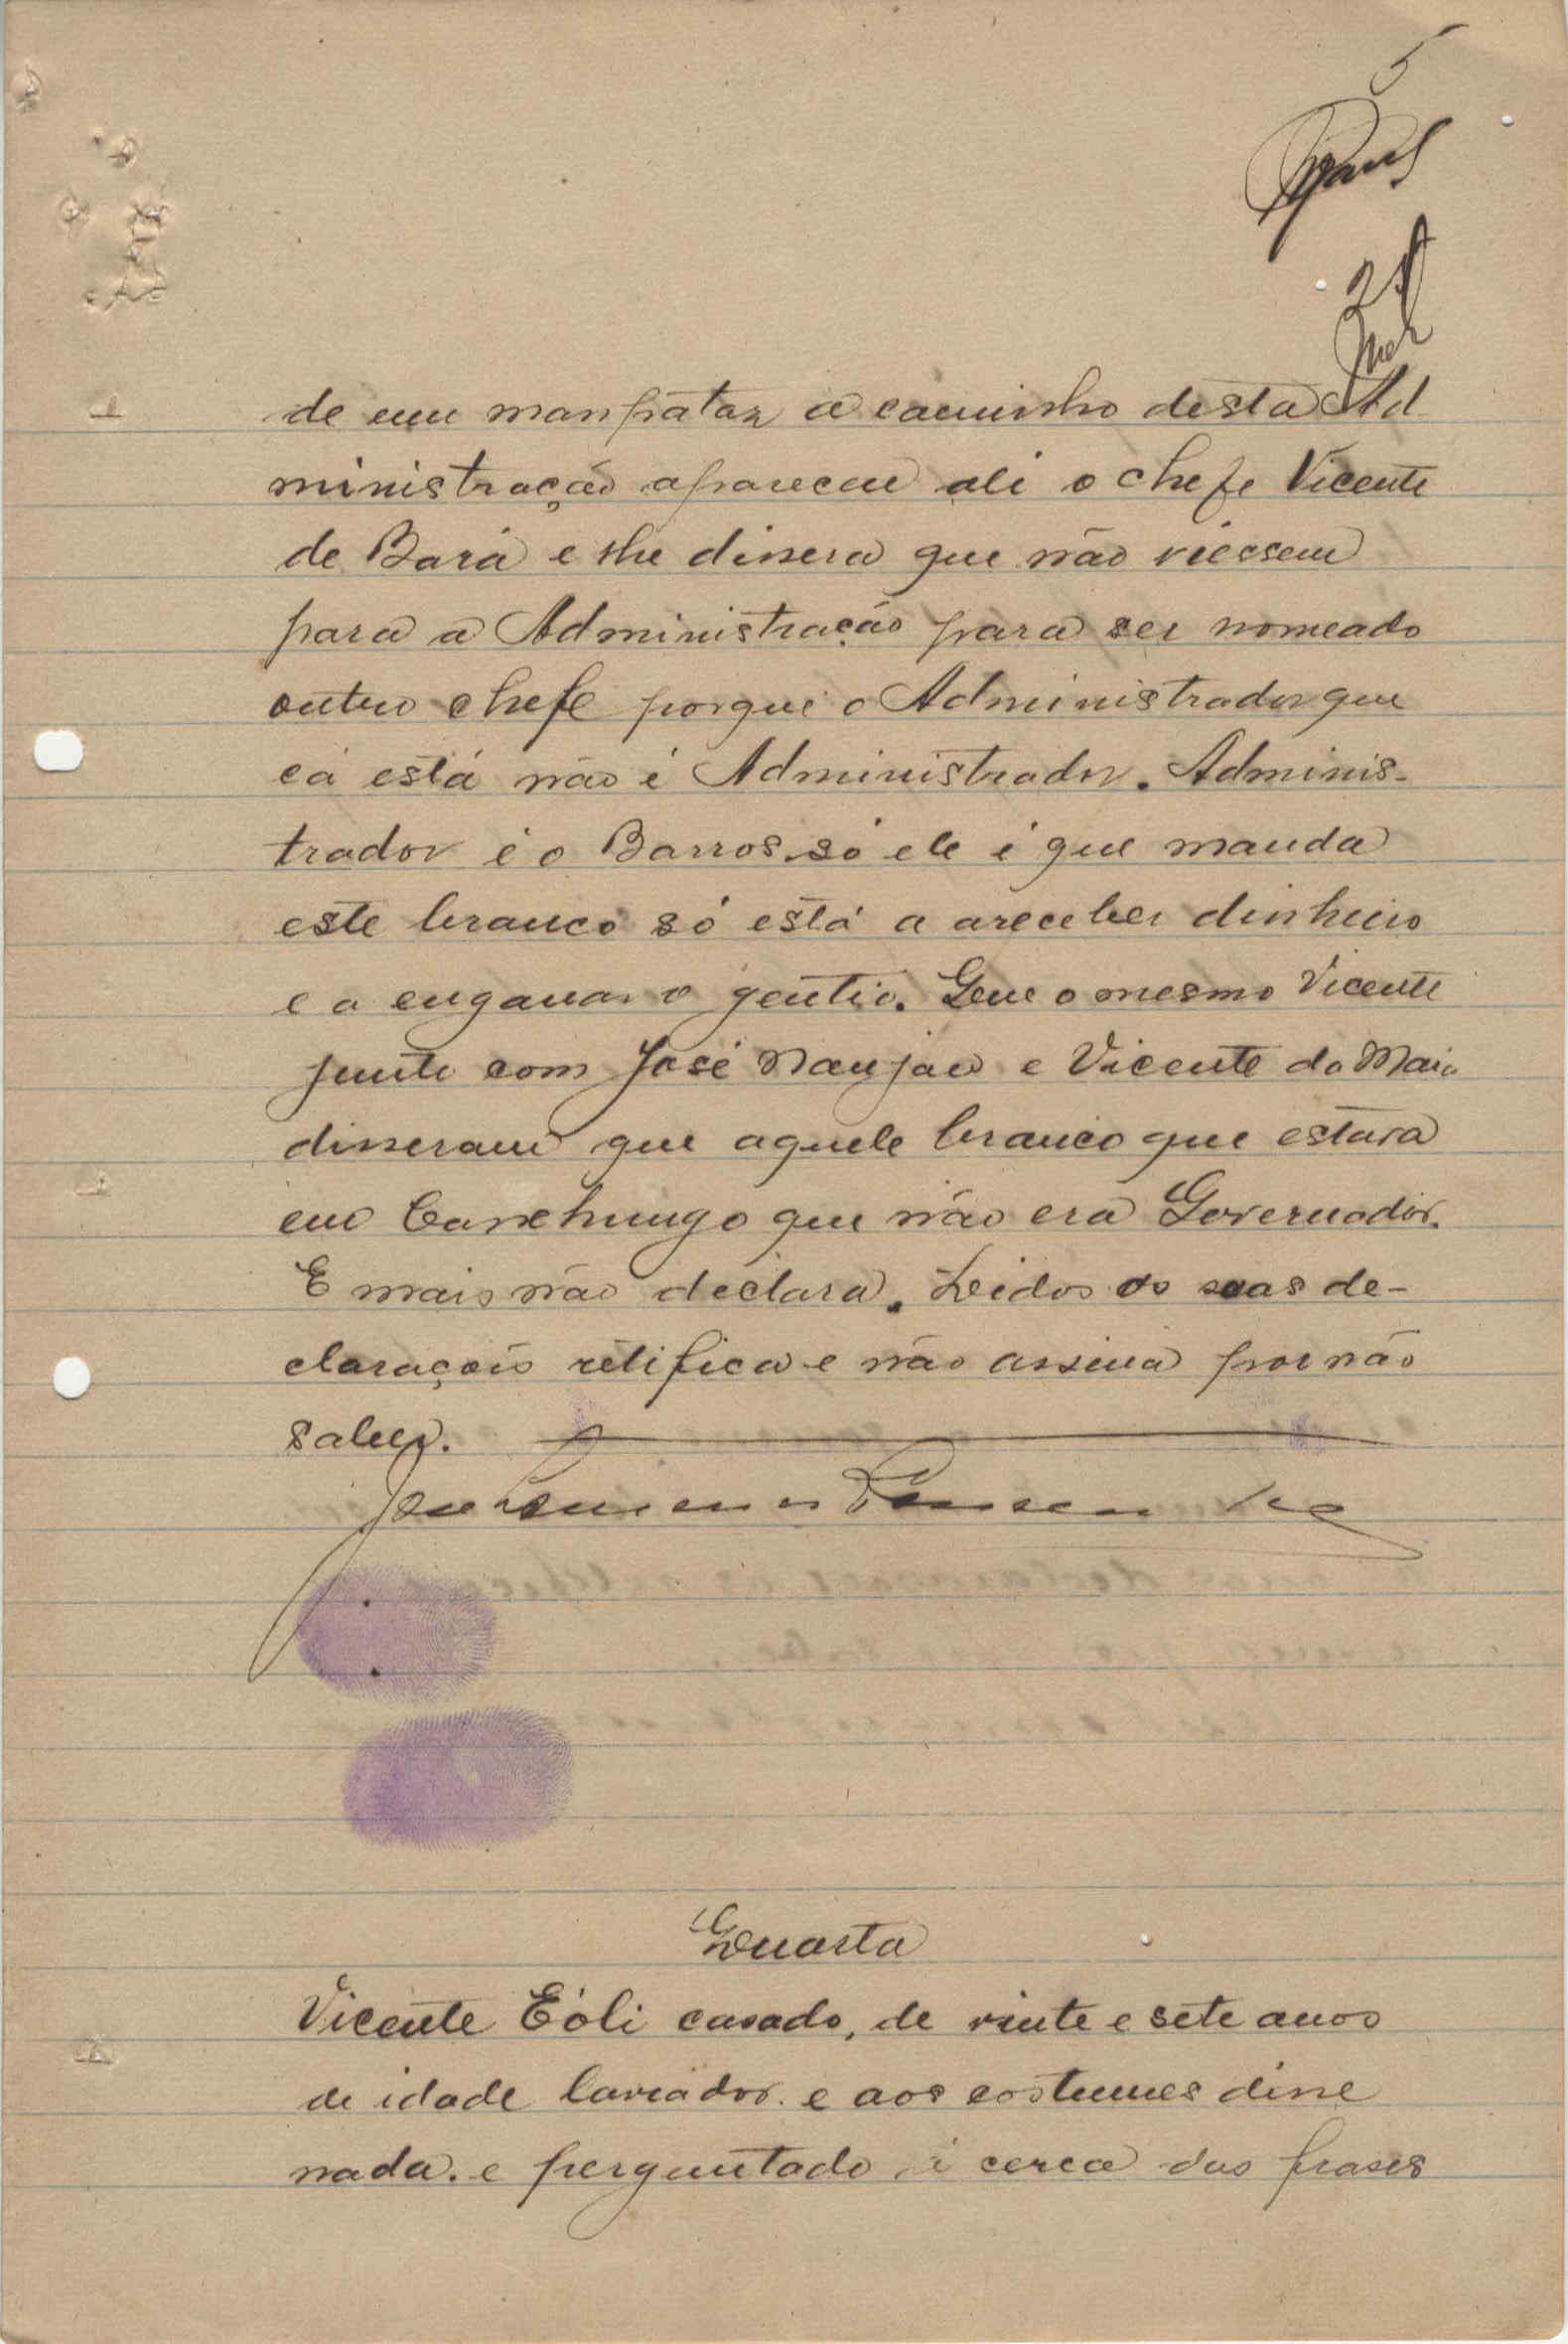 5
de um manpataz a caminho desta Ad
ministração apareceu ali o chefe Vicente
de Bará e lhe dissera que não viessem
para a Administração para ser nomeado
outro chefe porque o Administrador que
cá está não é Administrador. Adminis-
trador é o Barros só ele é que manda
este branco só está a areceber dinheiro
e a enganar o gentio. Que o mesmo Vicente
junto com José Naujau e Vicente da Maia
disseram que aquele branco que estava
em Canchungo que não era Governador.
E mais não declara. Leidos as suas de-
claraçois retifica e não assina por não
saber.
Quarta
Vicente Eóli casado, de vinte e sete anos
de idade lavrador e aos costumes disse
nada. e perguntado á cerca das frases